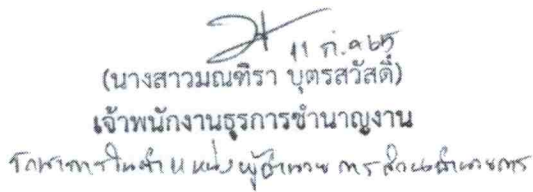 11 ก.ค. 65
(นางสาวมณฑิรา บุตรสวัสดิ์)
เจ้าพนักงานธุรการชำนาญงาน
รักษาการในตำแหน่งผู้อำนวยการส่วนอำนวยการ